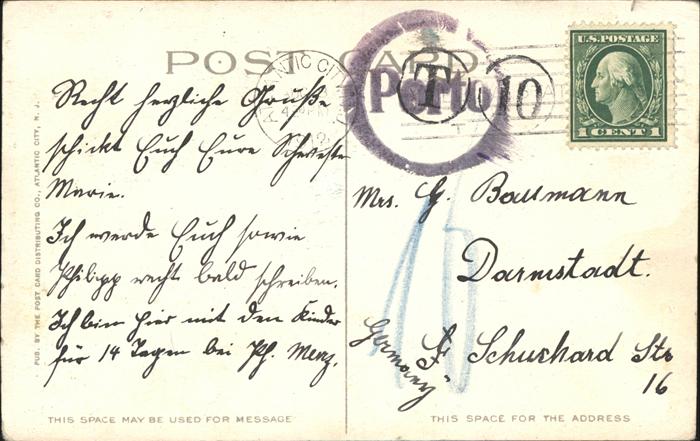 POST CARD
ATLANTIC CITY
Porto
T
10
U.S. POSTAGE
1 CENT 1
Recht herzliche Grüße
schickt Euch Eure Schwester
Marie.
Ich werde Euch sowie
Philipp recht bald schreiben.
Ich bin hier mit den Kinder
für 14 Tagen bei Ph. Menz.
Mrs. G. Bausmann
Darmstadt.
Schuchard Str
16
Germany
15
PUB. BY THE POST CARD DISTRIBUTING CO., ATLANTIC CITY, N. J.
THIS SPACE MAY BE USED FOR MESSAGE
THIS SPACE FOR THE ADDRESS